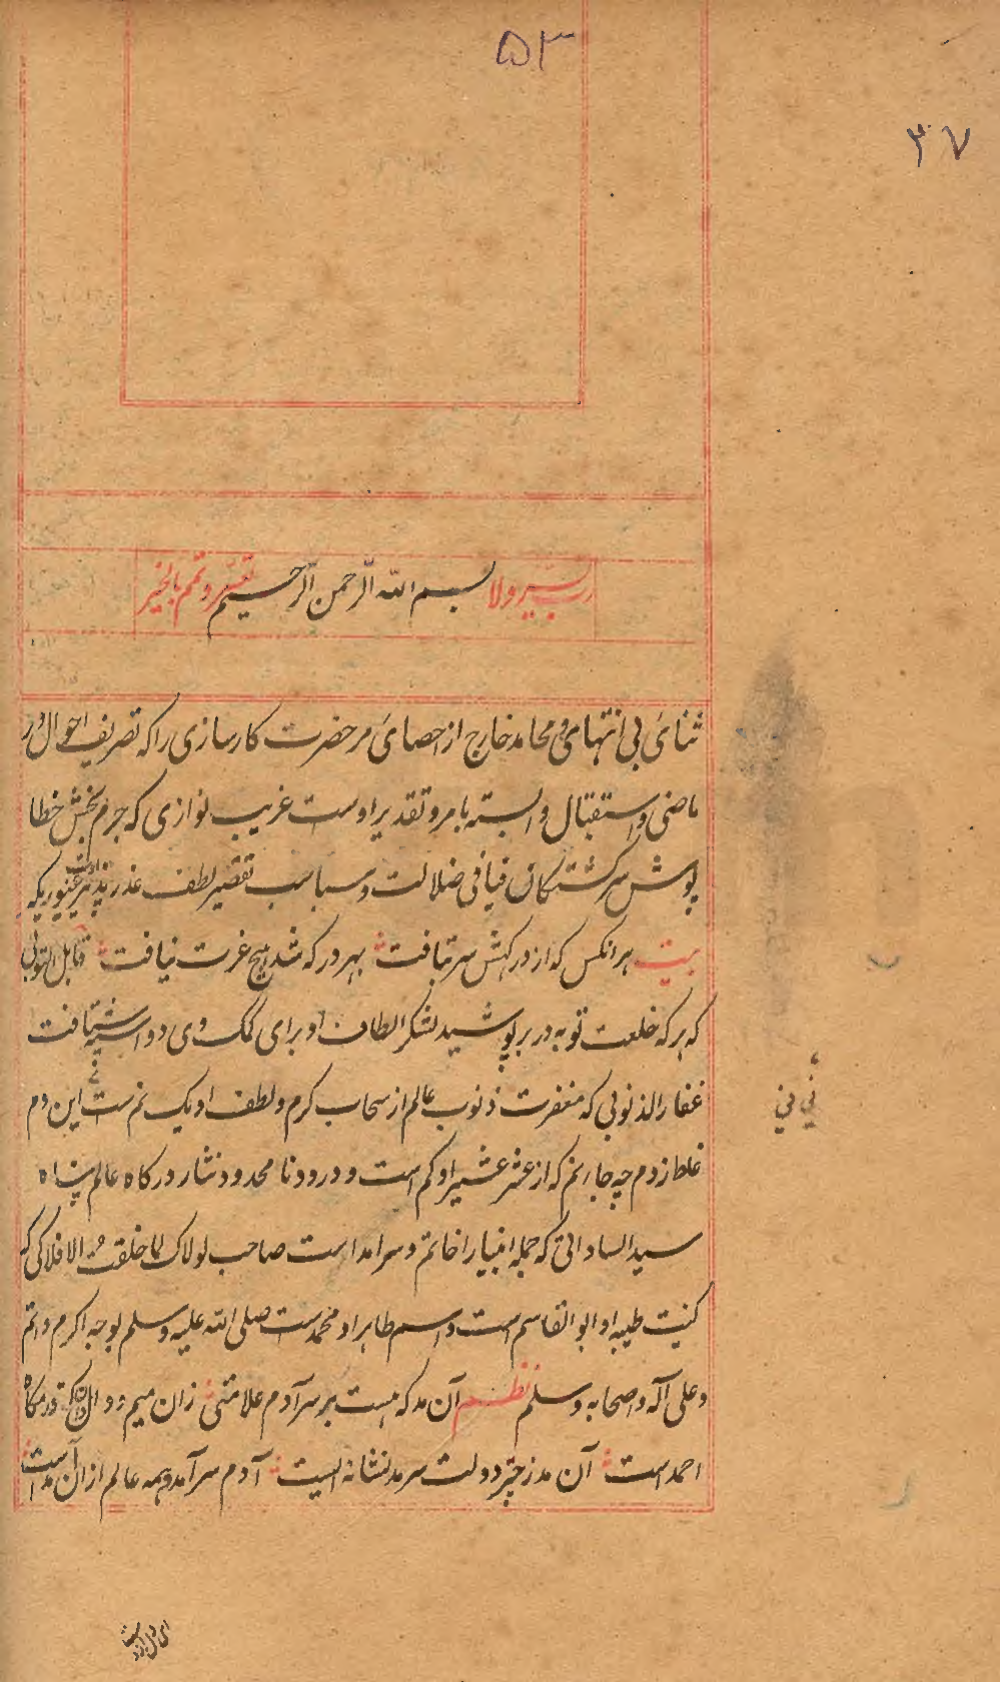 ۵۳
۳۷
رب یسر ولا بسم الله الرّحمن الرّحیم تعسر و تمم بالخیر
ثنای بی انتهای و محامد خارج از احصای مر حضرت کارسازی را که تصریف احوال در
ماضی و استقبال وابسته بامر و تقدیر اوست غریب نوازی که جرم بخش خطا
پوش سرکشتکان فیافی ضلالت و سباسب تقصیر لطف عذر پذیر اوست غیوریکه
بیت هر انکس که از درکهش سر بتافت بهر در که شد هیچ عزت نیافت قابل التوبی
که هر که خلعت توبه در بر پوشید لشکر الطاف او برای کمک وی دو اسپه شتافت
غفار الذنوبی که مغفرت ذنوب عالم از سحاب کرم و لطف او یک نم ست این دم
غلط زدم چه جای نم که از عشر عشیر او کم است و درود نا محدود نثار درکاه عالم پناه
سید الساداتی که جمله انبیا را خاتم و سرامد است صاحب لولاک لما خلقت الافلاکی که
کنیت طیبه او ابو القاسم است و اسم طاهر او محمد ست صلی الله علیه و سلم بوجه اکرم و اتم
و علی آله و اصحابه و سلم نظم آن مد که هست بر سر آدم علامتی زان میم و دال که در
احمد است آن مد ز چتر دولت سرمد نشانه ایست آدم سرآمد همه عالم ازان مد است
نی نی
ای دل از